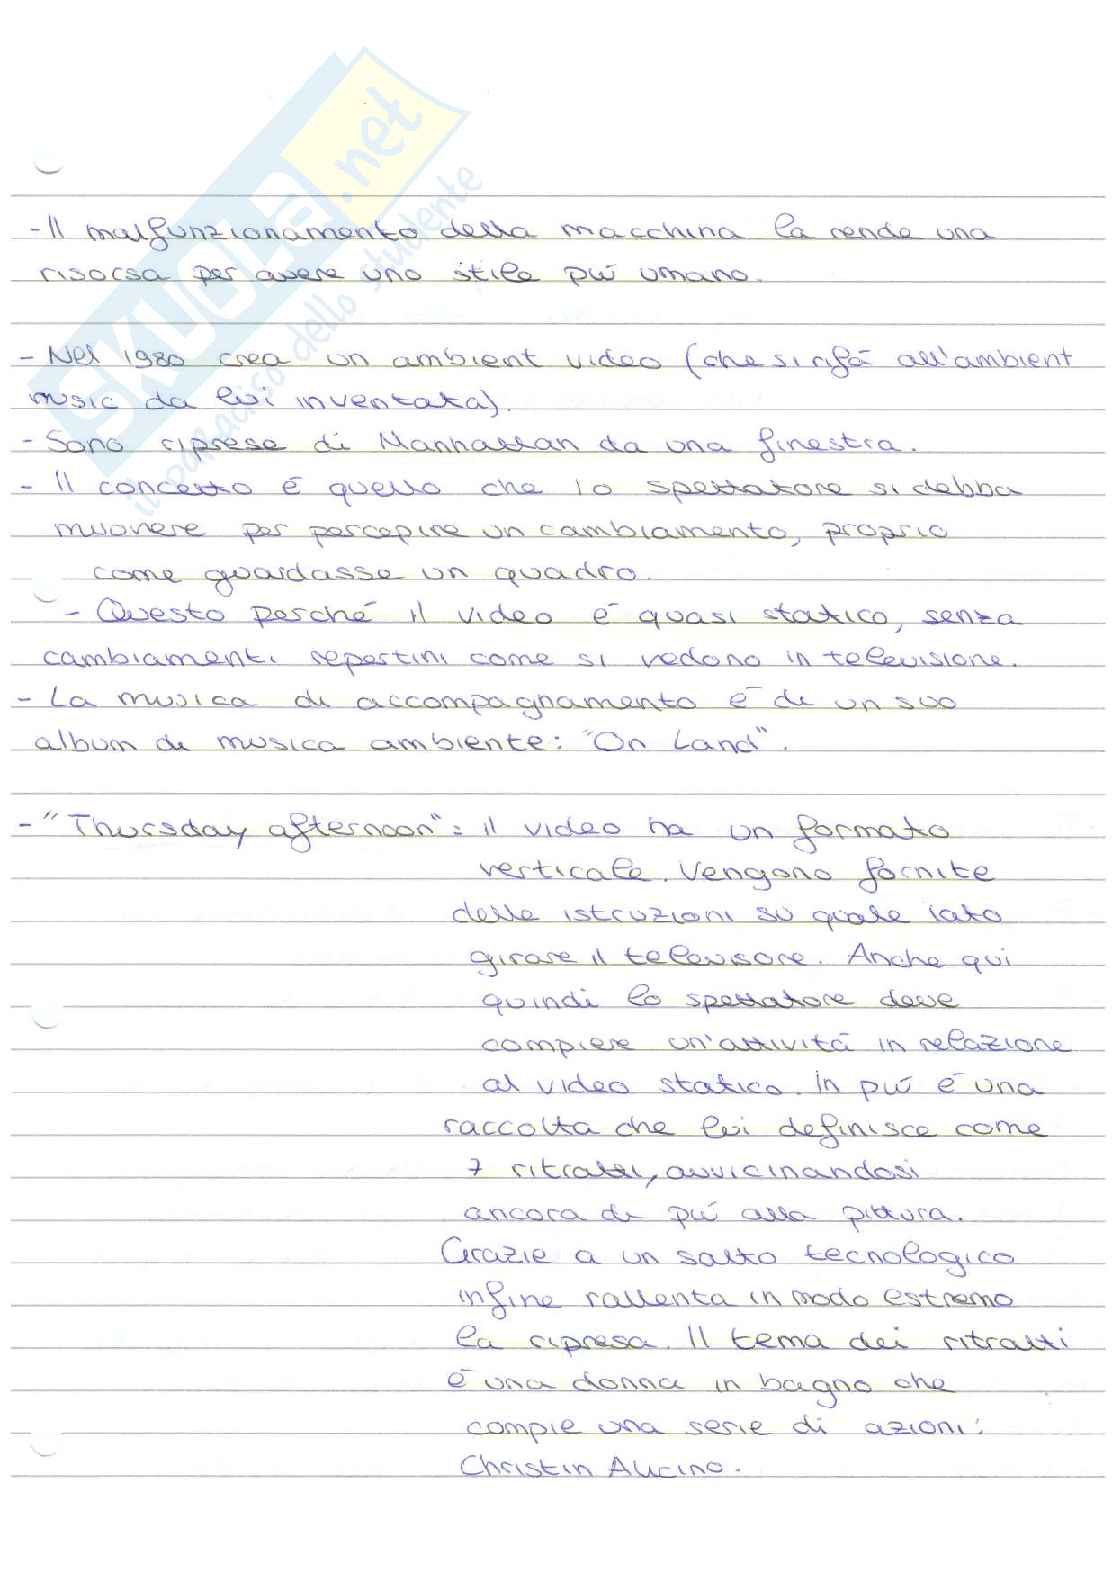 SKUOLA.net
il paradiso dello studente
- Il malfunzionamento della macchina la rende una
risorsa per avere uno stile più umano.
- Nel 1980 crea un ambient video (che si rifà all'ambient
music da lui inventata).
- Sono riprese di Manhattan da una finestra.
- Il concetto è quello che lo spettatore si debba
muovere per percepire un cambiamento, proprio
come guardasse un quadro.
- Questo perché il video è quasi statico, senza
cambiamenti repentini come si vedono in televisione.
- La musica di accompagnamento è di un suo
album di musica ambiente: "On Land".
- "Thursday afternoon": il video ha un formato
verticale. Vengono fornite
delle istruzioni su quale lato
girare il televisore. Anche qui
quindi lo spettatore deve
compiere un'attività in relazione
al video statico. In più è una
raccolta che lui definisce come
7 ritratti, avvicinandosi
ancora di più alla pittura.
Grazie a un salto tecnologico
infine rallenta in modo estremo
la ripresa. Il tema dei ritratti
è una donna in bagno che
compie una serie di azioni:
Christin Alicino.